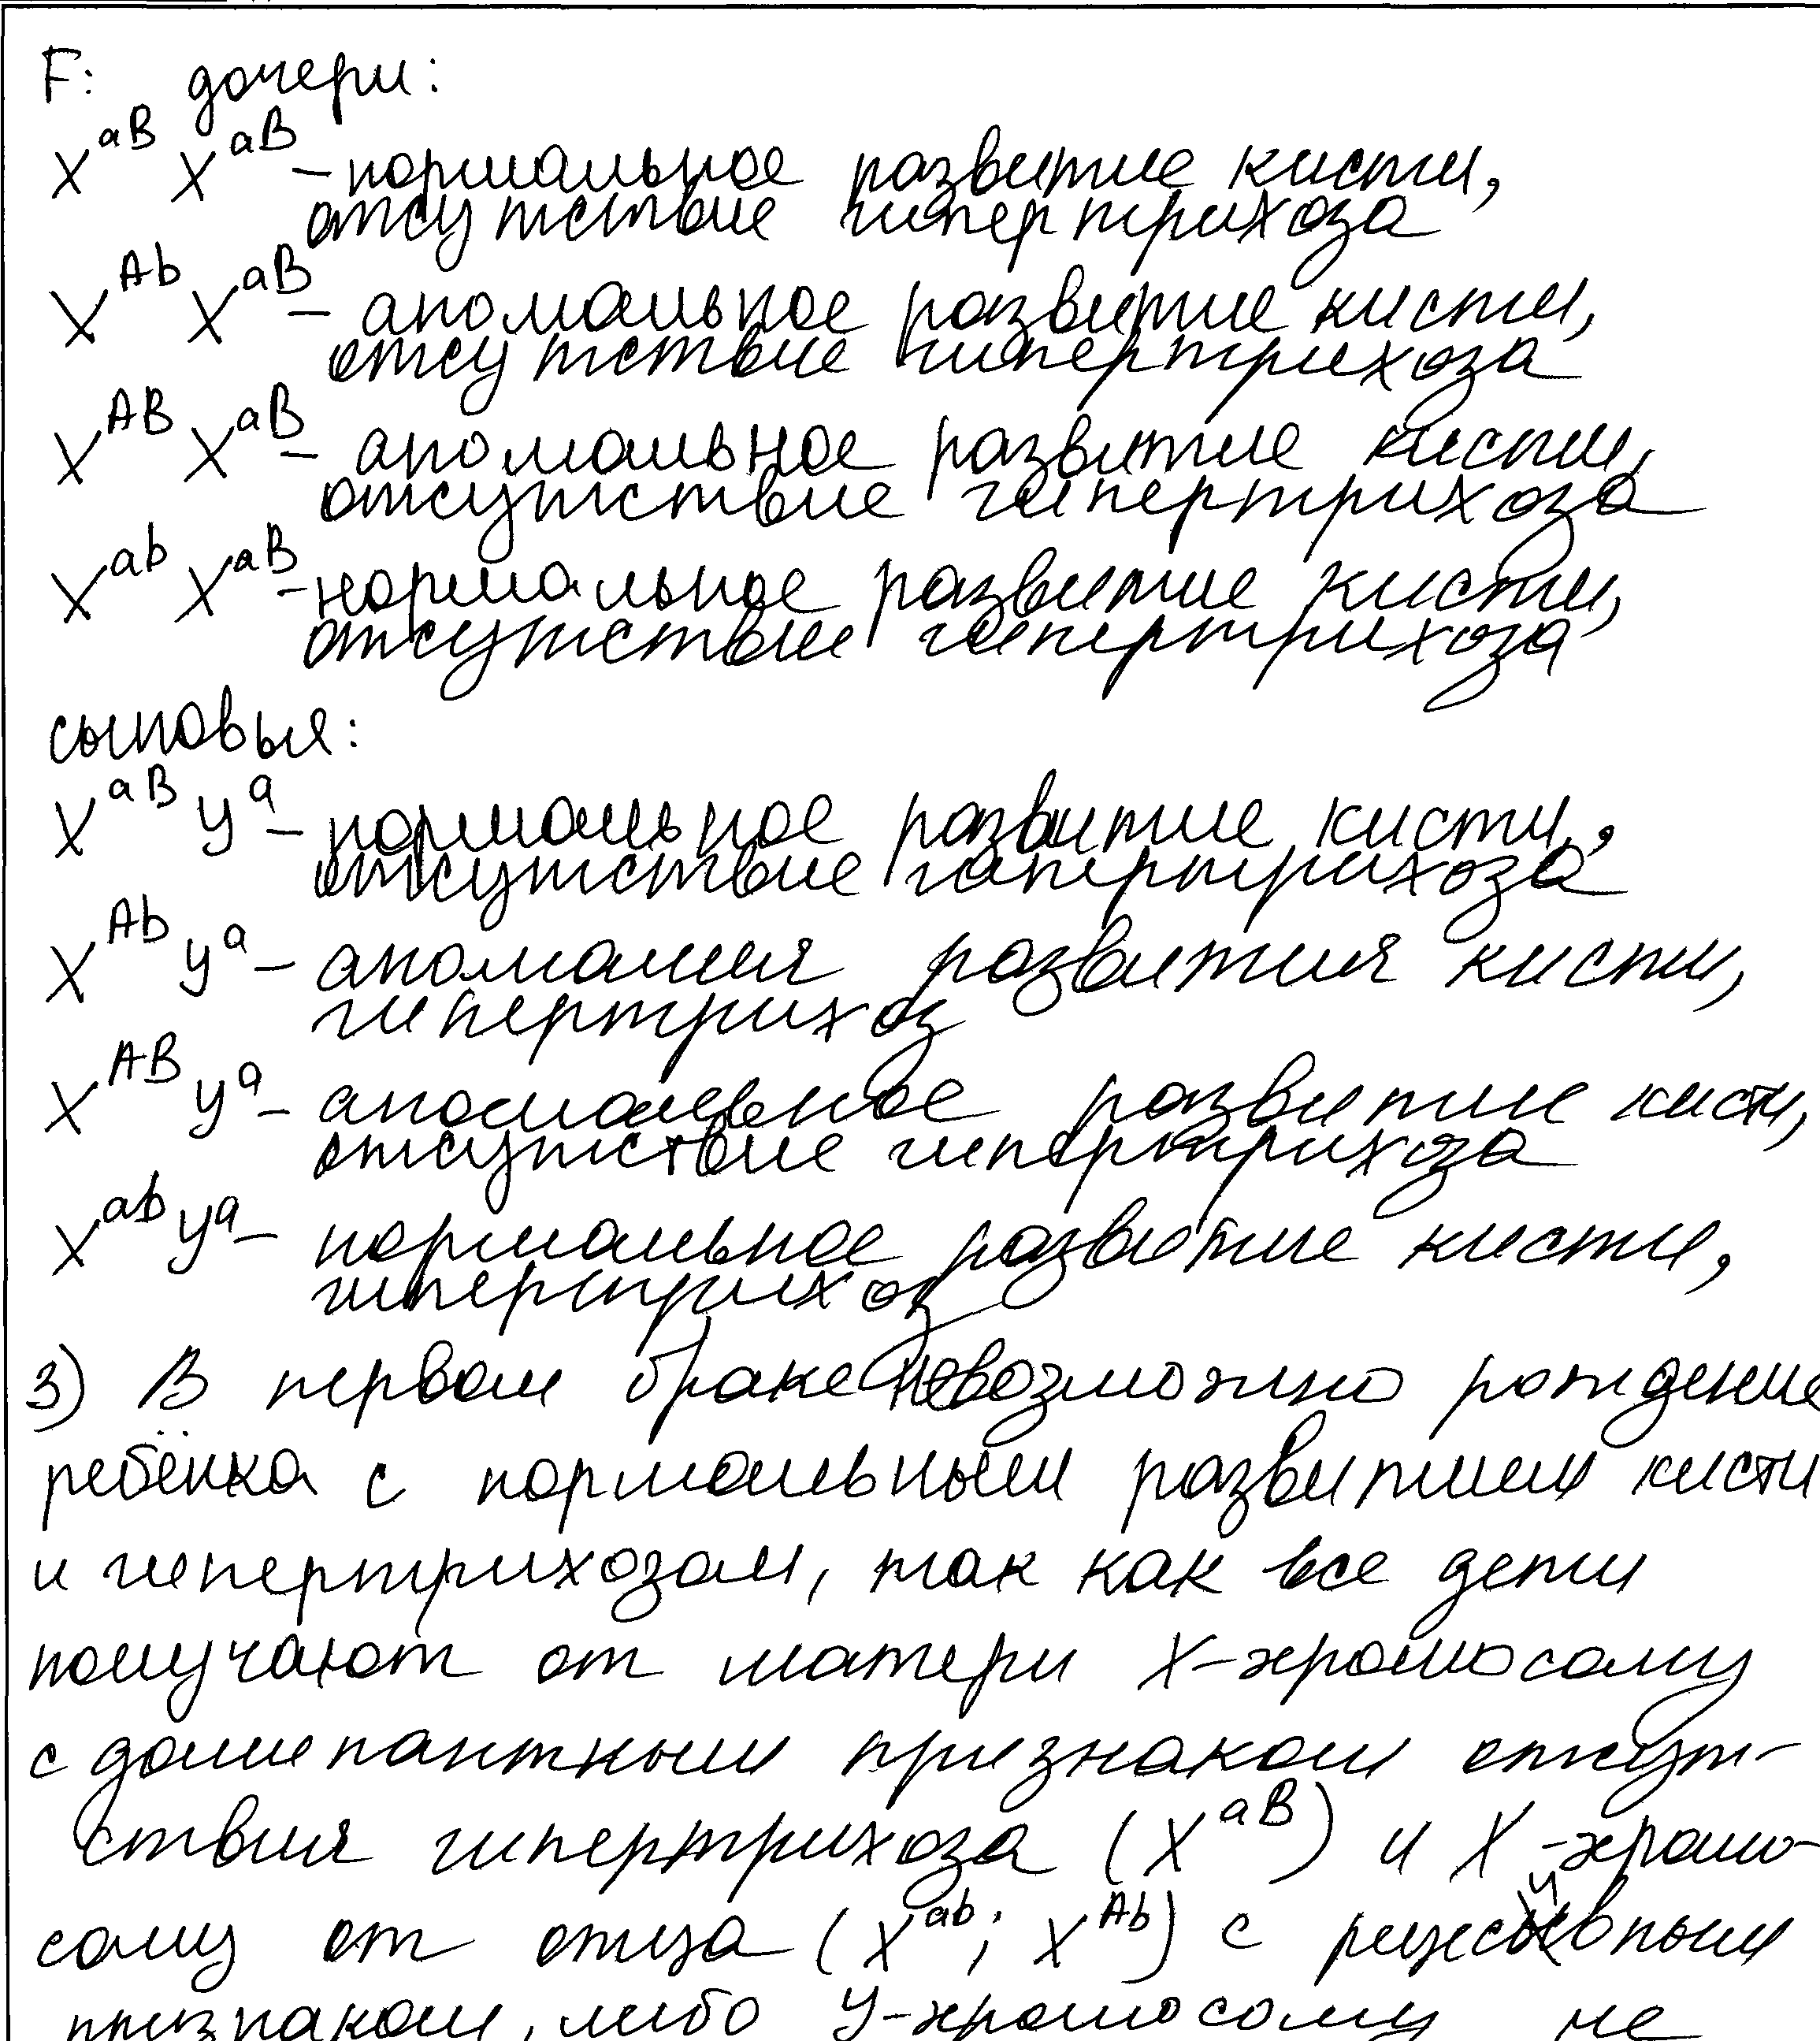 F: дочери:
X^aB X^aB – нормальное развитие кисти,
отсутствие гипертрихоза
X^Ab X^aB – аномальное развитие кисти,
отсутствие гипертрихоза
X^AB X^aB – аномальное развитие кисти,
отсутствие гипертрихоза
X^ab X^aB – нормальное развитие кисти,
отсутствие гипертрихоза
сыновья:
X^aB У^a – нормальное развитие кисти,
отсутствие гипертрихоза
X^Ab У^a – аномалия развития кисти,
гипертрихоз
X^AB У^a – аномальное развитие кисти,
отсутствие гипертрихоза
X^ab У^a – нормальное развитие кисти,
гипертрихоз
3) В первом браке невозможно рождение
ребёнка с нормальным развитием кисти
и гипертрихозом, так как все дети
получают от матери X-хромосому
с доминантным признаком отсут-
ствия гипертрихоза (X^aB) и X-хромо-
сому от отца (X^ab; X^Ab) с рецессивным
признаком, либо У-хромосому не